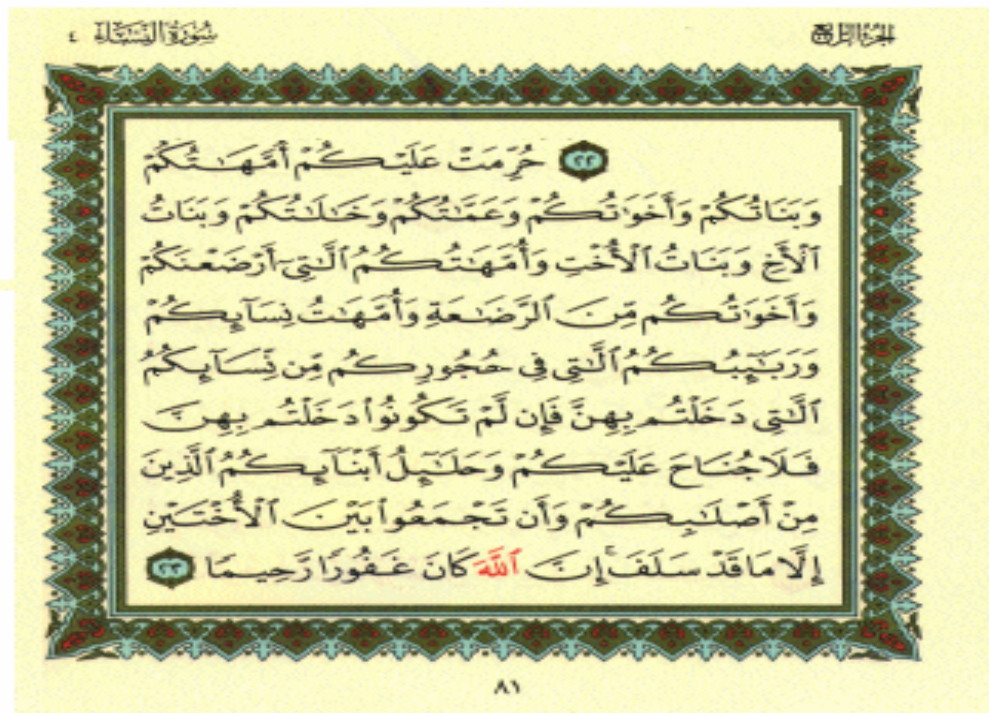 الجزء الرابع
سورة النساء ٤
٢٢ حُرِّمَتْ عَلَيْكُمْ أُمَّهَـٰتُكُمْ
وَبَنَاتُكُمْ وَأَخَوَٰتُكُمْ وَعَمَّـٰتُكُمْ وَخَـٰلَـٰتُكُمْ وَبَنَاتُ
ٱلْأَخِ وَبَنَاتُ ٱلْأُخْتِ وَأُمَّهَـٰتُكُمُ ٱلَّـٰتِىٓ أَرْضَعْنَكُمْ
وَأَخَوَٰتُكُم مِّنَ ٱلرَّضَـٰعَةِ وَأُمَّهَـٰتُ نِسَآئِكُمْ
وَرَبَـٰٓئِبُكُمُ ٱلَّـٰتِى فِى حُجُورِكُم مِّن نِّسَآئِكُمُ
ٱلَّـٰتِى دَخَلْتُم بِهِنَّ فَإِن لَّمْ تَكُونُوا۟ دَخَلْتُم بِهِنَّ
فَلَا جُنَاحَ عَلَيْكُمْ وَحَلَـٰٓئِلُ أَبْنَآئِكُمُ ٱلَّذِينَ
مِنْ أَصْلَـٰبِكُمْ وَأَن تَجْمَعُوا۟ بَيْنَ ٱلْأُخْتَيْنِ
إِلَّا مَا قَدْ سَلَفَ ۚ إِنَّ ٱللَّهَ كَانَ غَفُورًا رَّحِيمًا ٢٣
٨١